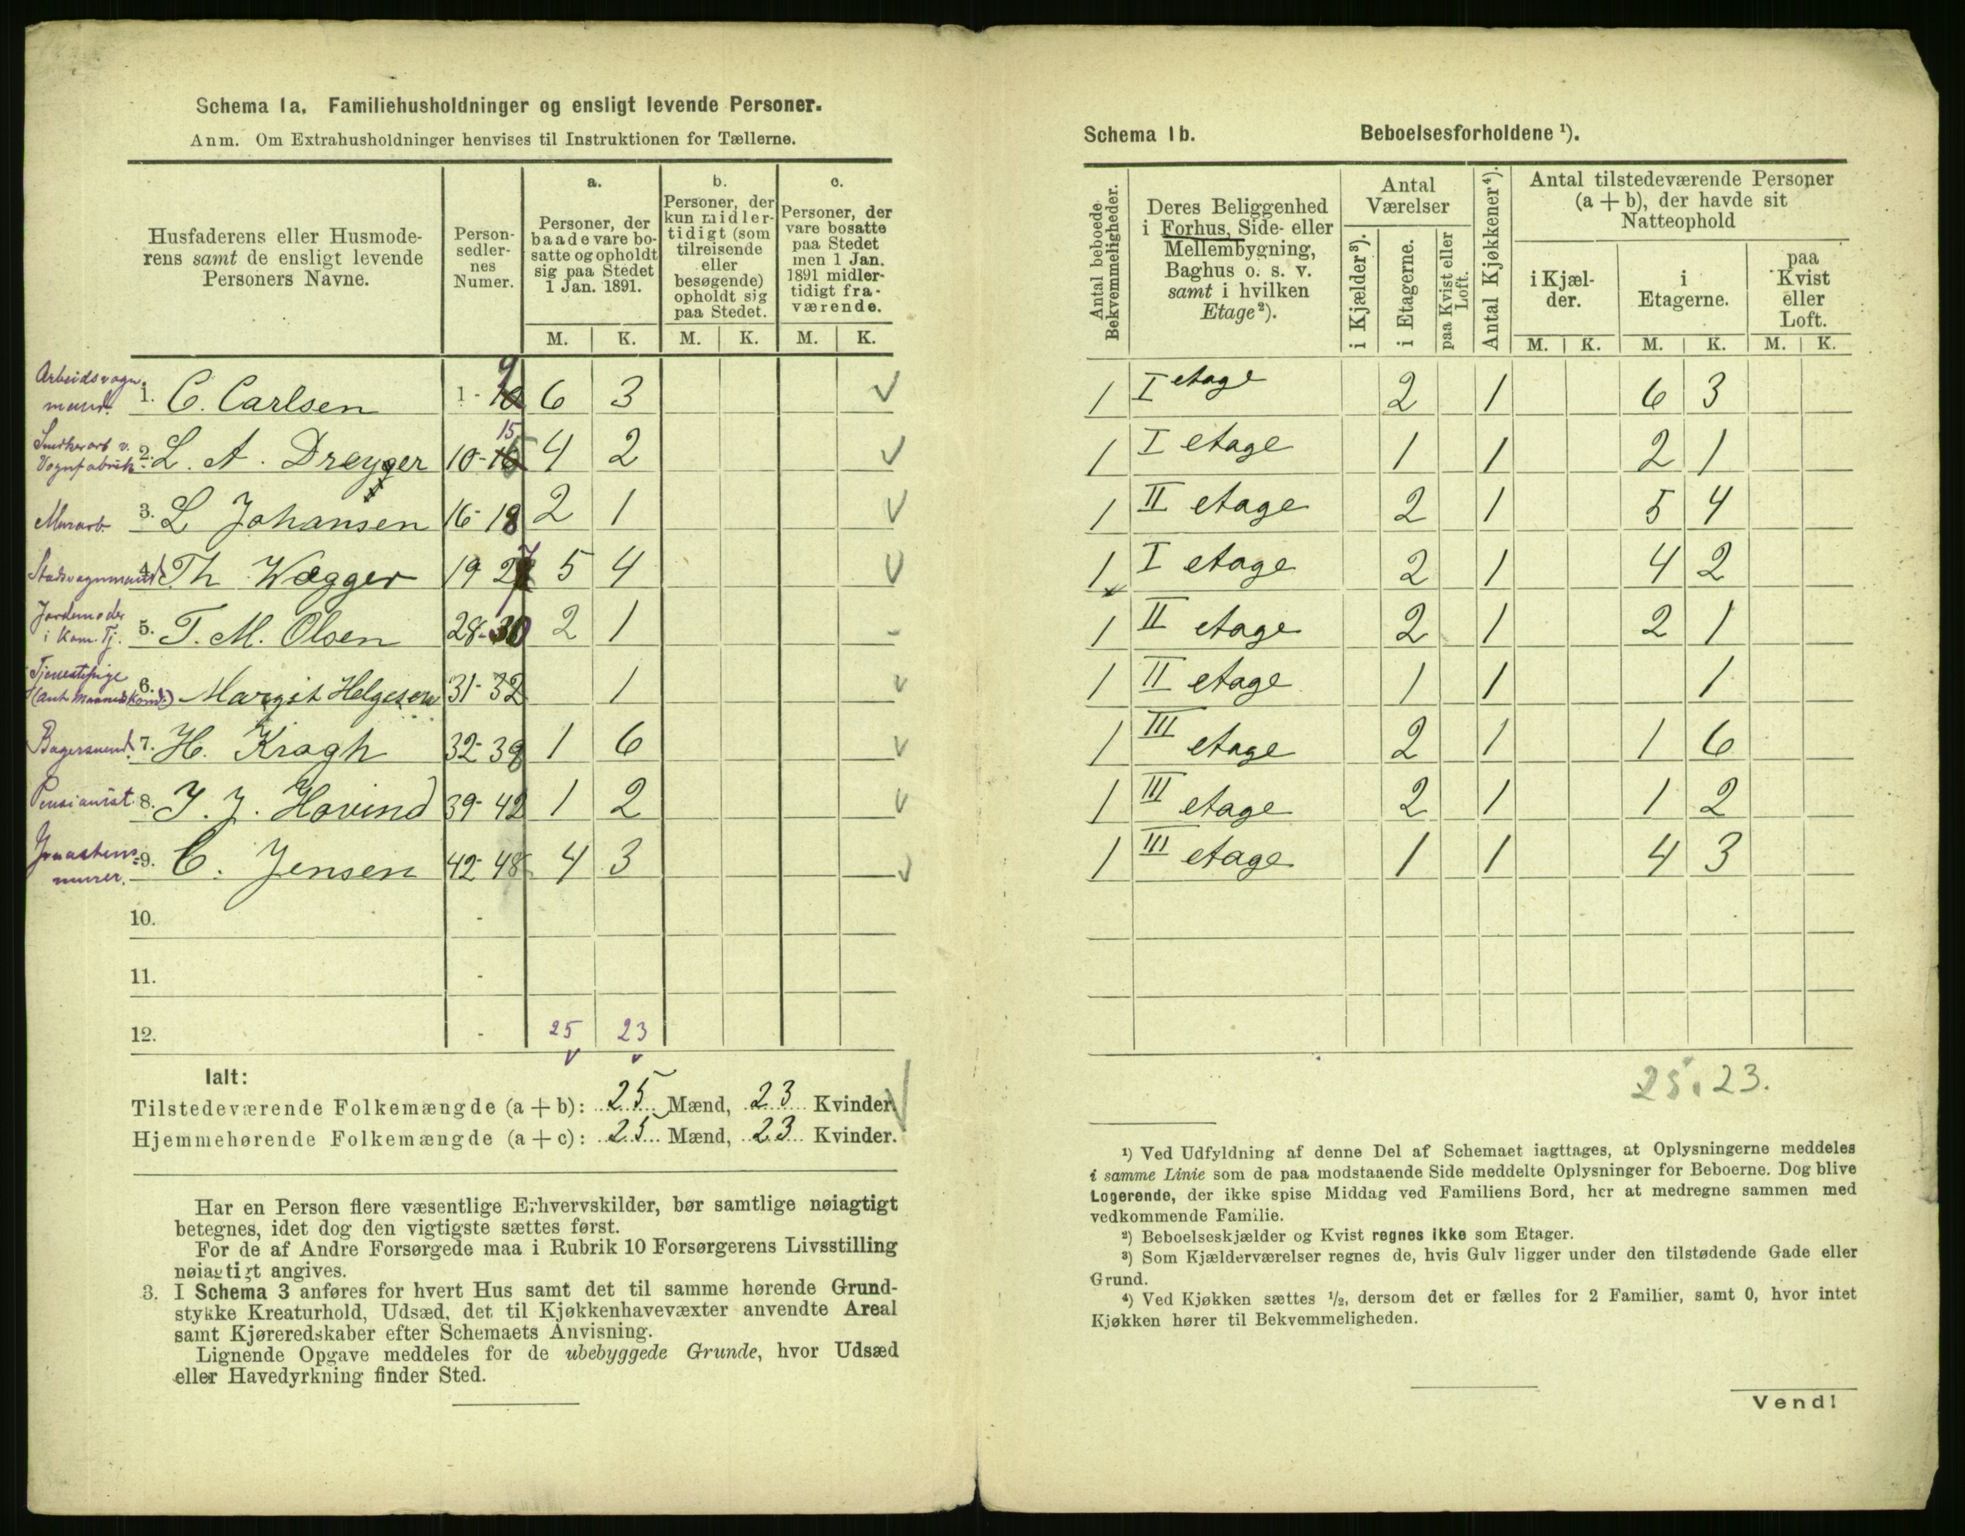 Schema 1a. Familiehusholdninger og ensligt levende Personer.
Anm. Om Extrahusholdninger henvises til Instruktionen for Tællerne.
Husfaderens eller Husmode-
rens samt de ensligt levende
Personers Navne.
Person-
sedler-
nes
Numer.
a.
Personer, der
baade vare bo-
satte og opholdt
sig paa Stedet
1 Jan. 1891.
b.
Personer, der
kun midler-
tidigt (som
tilreisende
eller
besøgende)
opholdt sig
paa Stedet.
c.
Personer, der
vare bosatte
paa Stedet
men 1 Jan.
1891 midler-
tidigt fra-
værende.
M. K. M. K. M. K.
Arbeidsvogn
mand. 1. C. Carlsen 1 - 9 6 3
Snedkerarb v.
Vognfabrik 2. L. A. Dreyger 10-15 4 2
Murarb. 3. L Johansen 16-18 2 1
Stadsvognmand 4. Th Wegger 19 27 5 4
Jordemoder
i Kom. Tj. 5. T. M. Olsen 28-30 2 1
Tjenestepige
6. Margit Helgesen 31-32 1
Bagersvend. 7. H. Kragh 32-38 1 6
Pensionist. 8. J. J. Hovind 39-42 1 2
murer. 9. C. Jensen 42-48 4 3
10. -
11. -
12. - 25 23
Ialt:
Tilstedeværende Folkemængde (a + b): 25 Mænd, 23 Kvinder.
Hjemmehørende Folkemængde (a + c): 25 Mænd, 23 Kvinder.
Har en Person flere væsentlige Erhvervskilder, bør samtlige nøiagtigt
betegnes, idet dog den vigtigste sættes først.
For de af Andre Forsørgede maa i Rubrik 10 Forsørgerens Livsstilling
nøiagtigt angives.
3. I Schema 3 anføres for hvert Hus samt det til samme hørende Grund-
stykke Kreaturhold, Udsæd, det til Kjøkkenhavevæxter anvendte Areal
samt Kjøreredskaber efter Schemaets Anvisning.
Lignende Opgave meddeles for de ubebyggede Grunde, hvor Udsæd
eller Havedyrkning finder Sted.
Schema 1b. Beboelsesforholdene ¹).
Antal beboede
Bekvemmeligheder.
Deres Beliggenhed
i Forhus, Side- eller
Mellembygning,
Baghus o. s. v.
samt i hvilken
Etage²).
Antal
Værelser
i Kjælder³).
i Etagerne.
paa Kvist eller
Loft.
Antal Kjøkkener⁴).
Antal tilstedeværende Personer
(a + b), der havde sit
Natteophold
i Kjæl-
der.
i
Etagerne.
paa
Kvist
eller
Loft.
M. K. M. K. M. K.
1 I etage 2 1 6 3
1 I etage 1 1 2 1
1 II etage 2 1 5 4
1 I etage 2 1 4 2
1 II etage 2 1 2 1
1 II etage 1 1 1
1 III etage 2 1 1 6
1 III etage 2 1 1 2
1 III etage 1 1 4 3
25. 23.
¹) Ved Udfyldning af denne Del af Schemaet iagttages, at Oplysningerne meddeles
i samme Linie som de paa modstaaende Side meddelte Oplysninger for Beboerne. Dog blive
Logerende, der ikke spise Middag ved Familiens Bord, her at medregne sammen med
vedkommende Familie.
²) Beboelseskjælder og Kvist regnes ikke som Etager.
³) Som Kjælderværelser regnes de, hvis Gulv ligger under den tilstødende Gade eller
Grund.
⁴) Ved Kjøkken sættes ½, dersom det er fælles for 2 Familier, samt 0, hvor intet
Kjøkken hører til Bekvemmeligheden.
Vend!